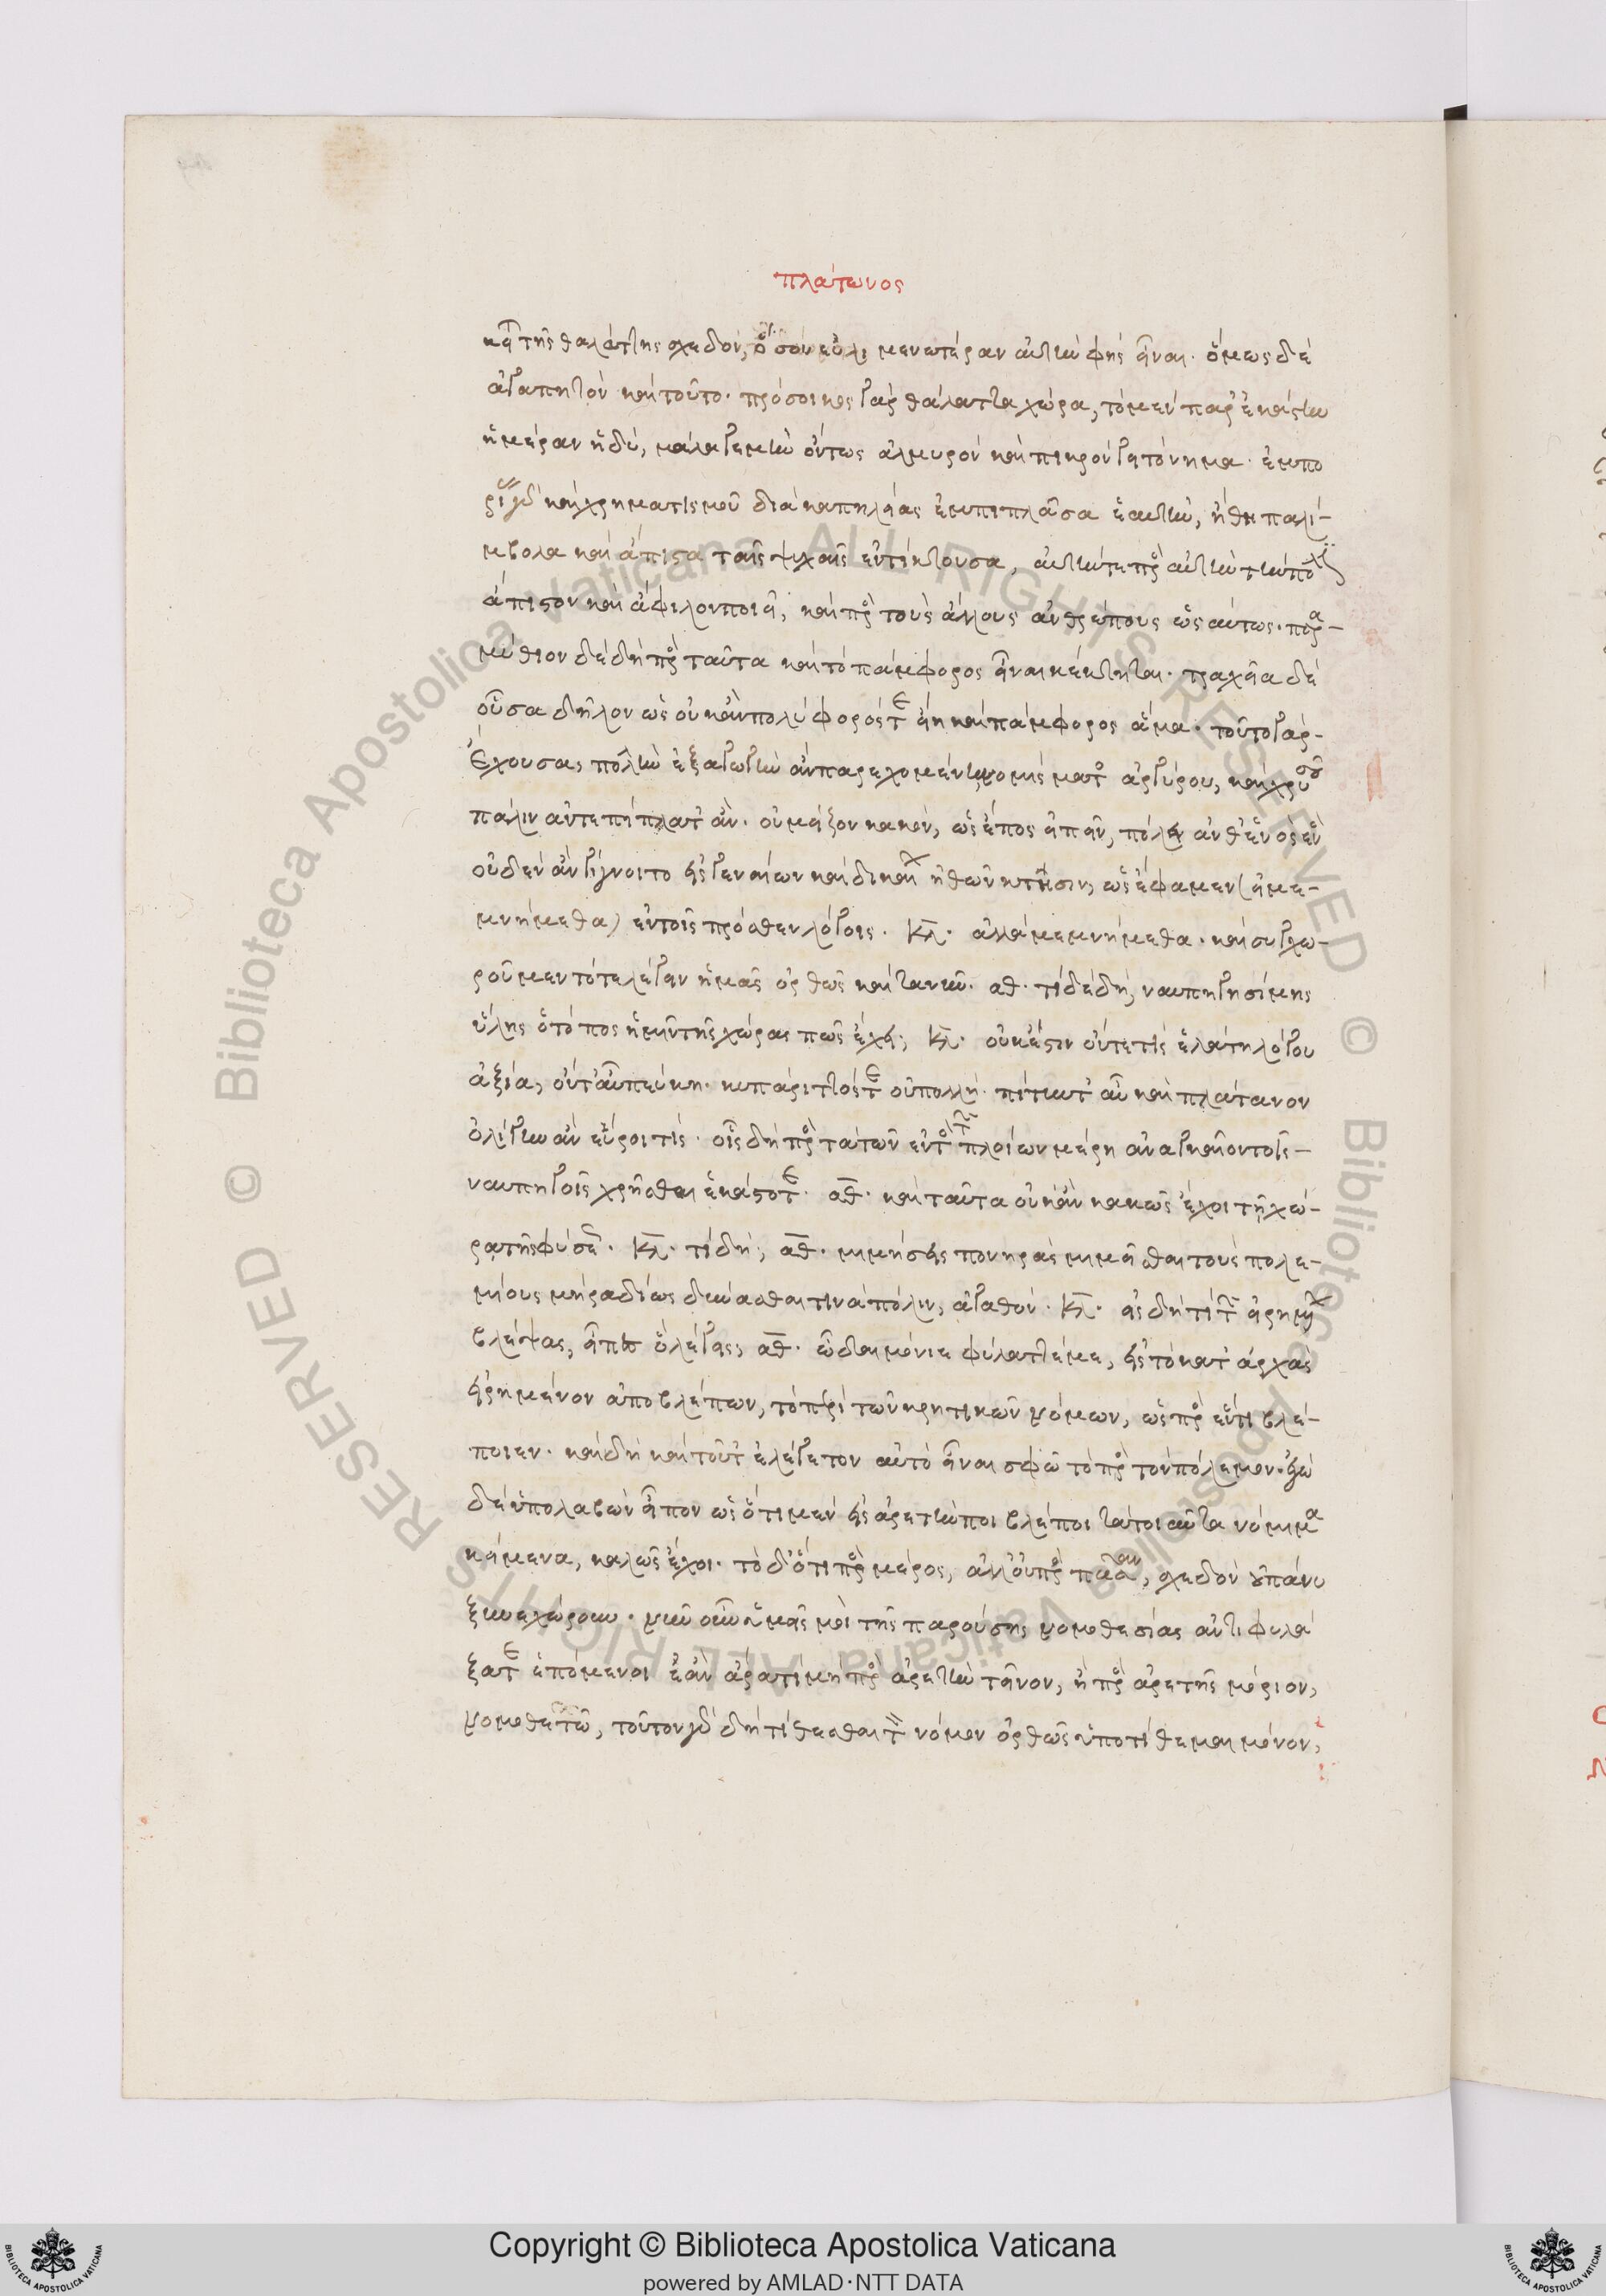 πλάτωνος
κεῖ τῆς θαλάττης σχεδόν, ὅσον εὐλιμενωτέραν αὐτὴν φὴς εἶναι. ὅμως δὲ
ἀγαπητὸν καὶ τοῦτο. πρόσοικος γὰρ θάλαττα χώρα, τὸ μὲν παρ' ἑκάστην
ἡμέραν ἡδύ, μάλα γε μὴν ὄντως ἁλμυρὸν καὶ πικρὸν γειτόνημα. ἐμπο
ρίας γὰρ καὶ χρηματισμοῦ διὰ καπηλείας ἐμπιπλᾶσα ἑαυτὴν, ἤθη παλί-
μβολα καὶ ἄπιστα ταῖς ψυχαῖς ἐντίκτουσα, αὐτήν τε πρὸς αὑτὴν τὴν πόλιν
ἄπιστον καὶ ἄφιλον ποιεῖ, καὶ πρὸς τοὺς ἄλλους ἀνθρώπους ὡσαύτως. παρα-
μύθιον δὲ δὴ πρὸς ταῦτα καὶ τὸ πάμφορος εἶναι κέκτηται. τραχεῖα δὲ
οὖσα δῆλον ὡς οὐκ ἂν πολύφορός τε εἴη καὶ πάμφορος ἅμα. τοῦτο γὰρ-
ἔχουσα, πολλὴν ἐξαγωγὴν ἂν παρεχομένη νομίσματος ἀργύρου, καὶ χρυσοῦ
πάλιν ἀντεπίπλατ' ἄν. οὗ μεῖζον κακὸν, ὡς ἔπος εἰπεῖν, πόλει ἀνθ' ἑνὸς ἓν
οὐδὲν ἂν γίγνοιτο εἰς γενναίων καὶ δικαίων ἠθῶν κτῆσιν, ὡς ἔφαμεν (εἰ με-
μνήμεθα) ἐν τοῖς πρόσθεν λόγοις. Κλ. ἀλλὰ μεμνήμεθα. καὶ συγχω-
ροῦμεν τότε λέγειν ἡμᾶς ὀρθῶς καὶ τανῦν. αθ. τί δὲ δή, ναυπηγησίμης
ὕλης ὁ τόπος ἡμῖν τῆς χώρας πῶς ἔχει; Κλ. οὐκ ἔστιν οὔτε τις ἐλάτη λόγου
ἀξία, οὔτ' αὖ πεύκη. κυπάριττός τε οὐ πολλή. πίτυν τ' αὖ καὶ πλάτανον
ὀλίγην ἂν εὕροι τις. οἷς δὴ πρὸς τὰ τῶν ἐντὸς τῶν πλοίων μέρη ἀναγκαῖον τοῖς-
ναυπηγοῖς χρῆσθαι ἑκάστοτε. αθ. καὶ ταῦτα οὐκ ἂν κακῶς ἔχοι τῇ χώ-
ρᾳ τῆς φύσεως. Κλ. τί δή; αθ. μιμήσεις πονηρὰς μιμεῖσθαι τοὺς πολε-
μίους μὴ ῥᾳδίως δύνασθαί τινα πόλιν, ἀγαθόν. Κλ. εἰς δὴ τί τῶν εἰρημένων
βλέψας, εἶπες ὃ λέγεις; αθ. ὦ δαιμόνιε φύλαττέ με, εἰς τὸ κατ' ἀρχὰς
εἰρημένον ἀποβλέπων, τὸ περὶ τῶν κρητικῶν νόμων, ὡς πρὸς ἕν τι βλέ-
ποιεν. καὶ δὴ καὶ τοῦτ' ἐλεγέτην αὐτὸ εἶναι σφὼ τὸ πρὸς τὸν πόλεμον. ἐγὼ
δὲ ὑπολαβὼν εἶπον ὡς ὅτι μὲν εἰς ἀρετήν ποι βλέποι τὰ τοιαῦτα νόμιμα
κείμενα, καλῶς ἔχοι. τὸ δ' ὅτι πρὸς μέρος, ἀλλ' οὐ πρὸς πᾶσαν, σχεδὸν οὐ πάνυ
ξυνεχώρουν. νῦν οὖν ὑμεῖς μοι τῆς παρούσης νομοθεσίας ἀντιφυλά
ξατε ἑπόμενοι ἐὰν ἄρα τι μὴ πρὸς ἀρετὴν τεῖνον, ἢ πρὸς ἀρετῆς μόριον,
νομοθετῶ, τοῦτον γὰρ δὴ τίθεσθαι τὸν νόμον ὀρθῶς ὑποτίθεμαι μόνον,
Copyright © Biblioteca Apostolica Vaticana
powered by AMLAD·NTT DATA